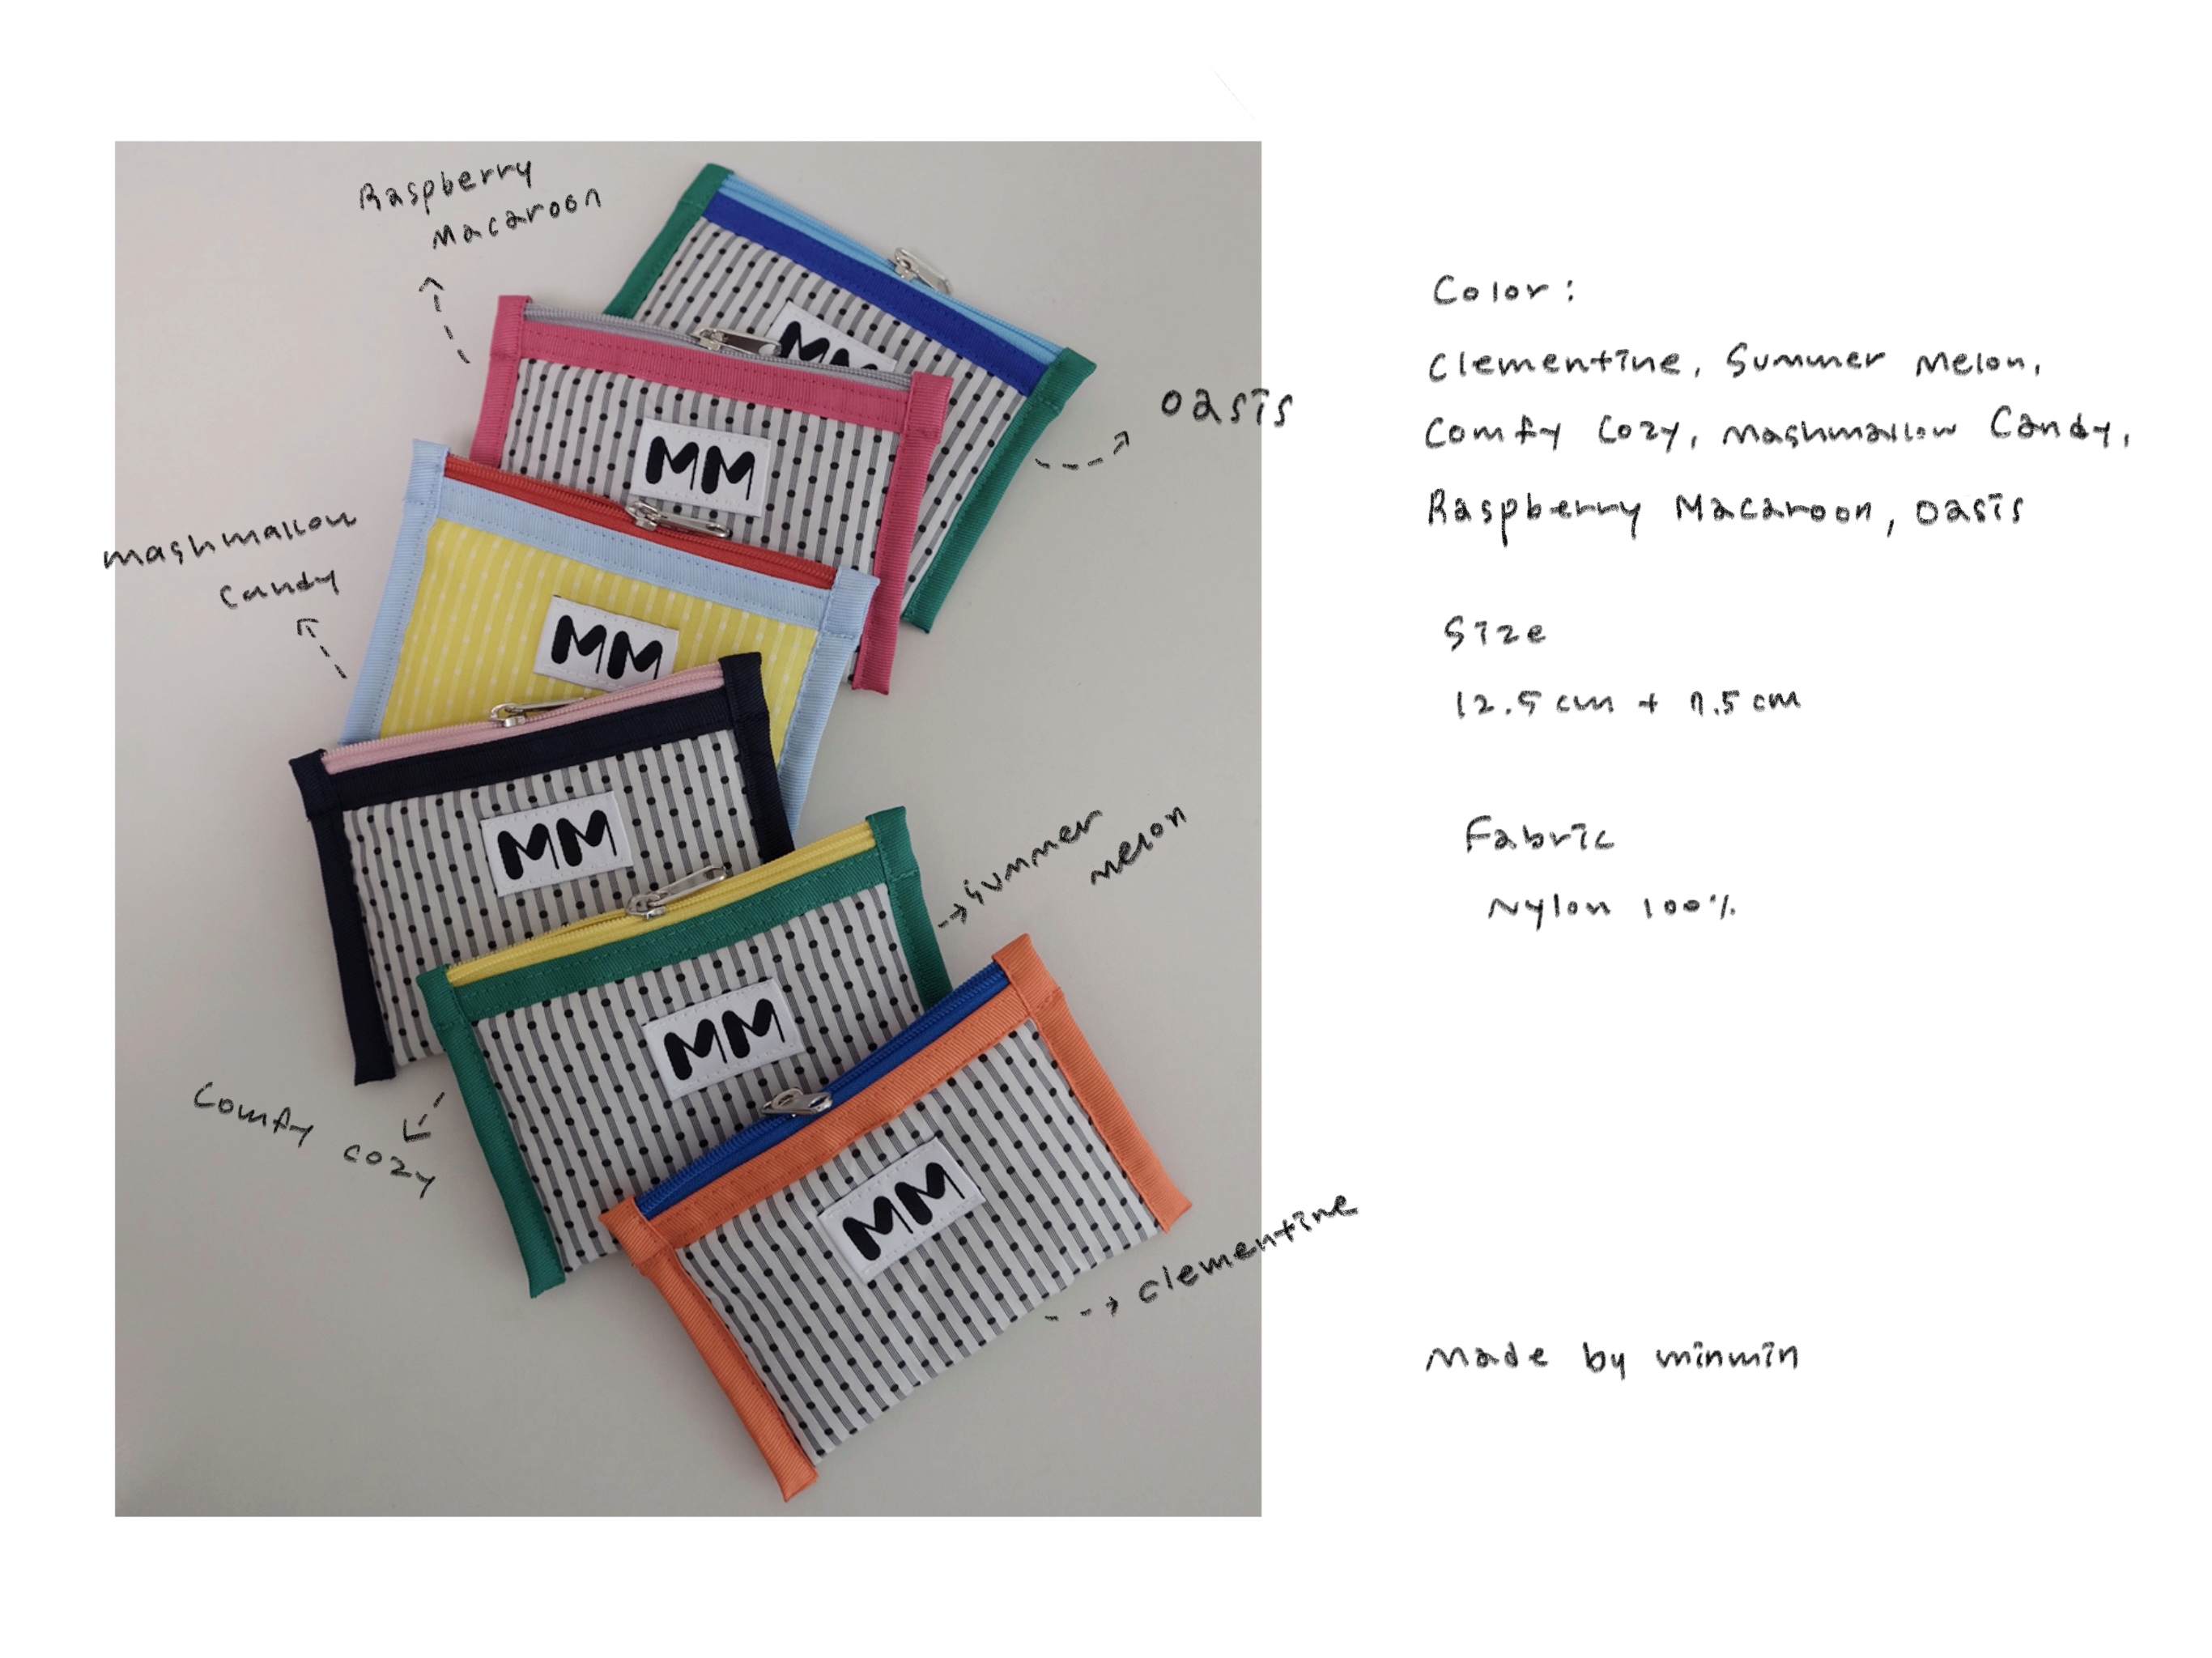 Raspberry
Macaroon
oasis
mashmallow
candy
summer
melon
comfy cozy
clementine
MM
MM
MM
MM
MM
MM
Color:
Clementine, Summer Melon,
Comfy Cozy, Mashmallow Candy,
Raspberry Macaroon, Oasis
Size
12.5cm + 7.5cm
Fabric
Nylon 100%
Made by minmin